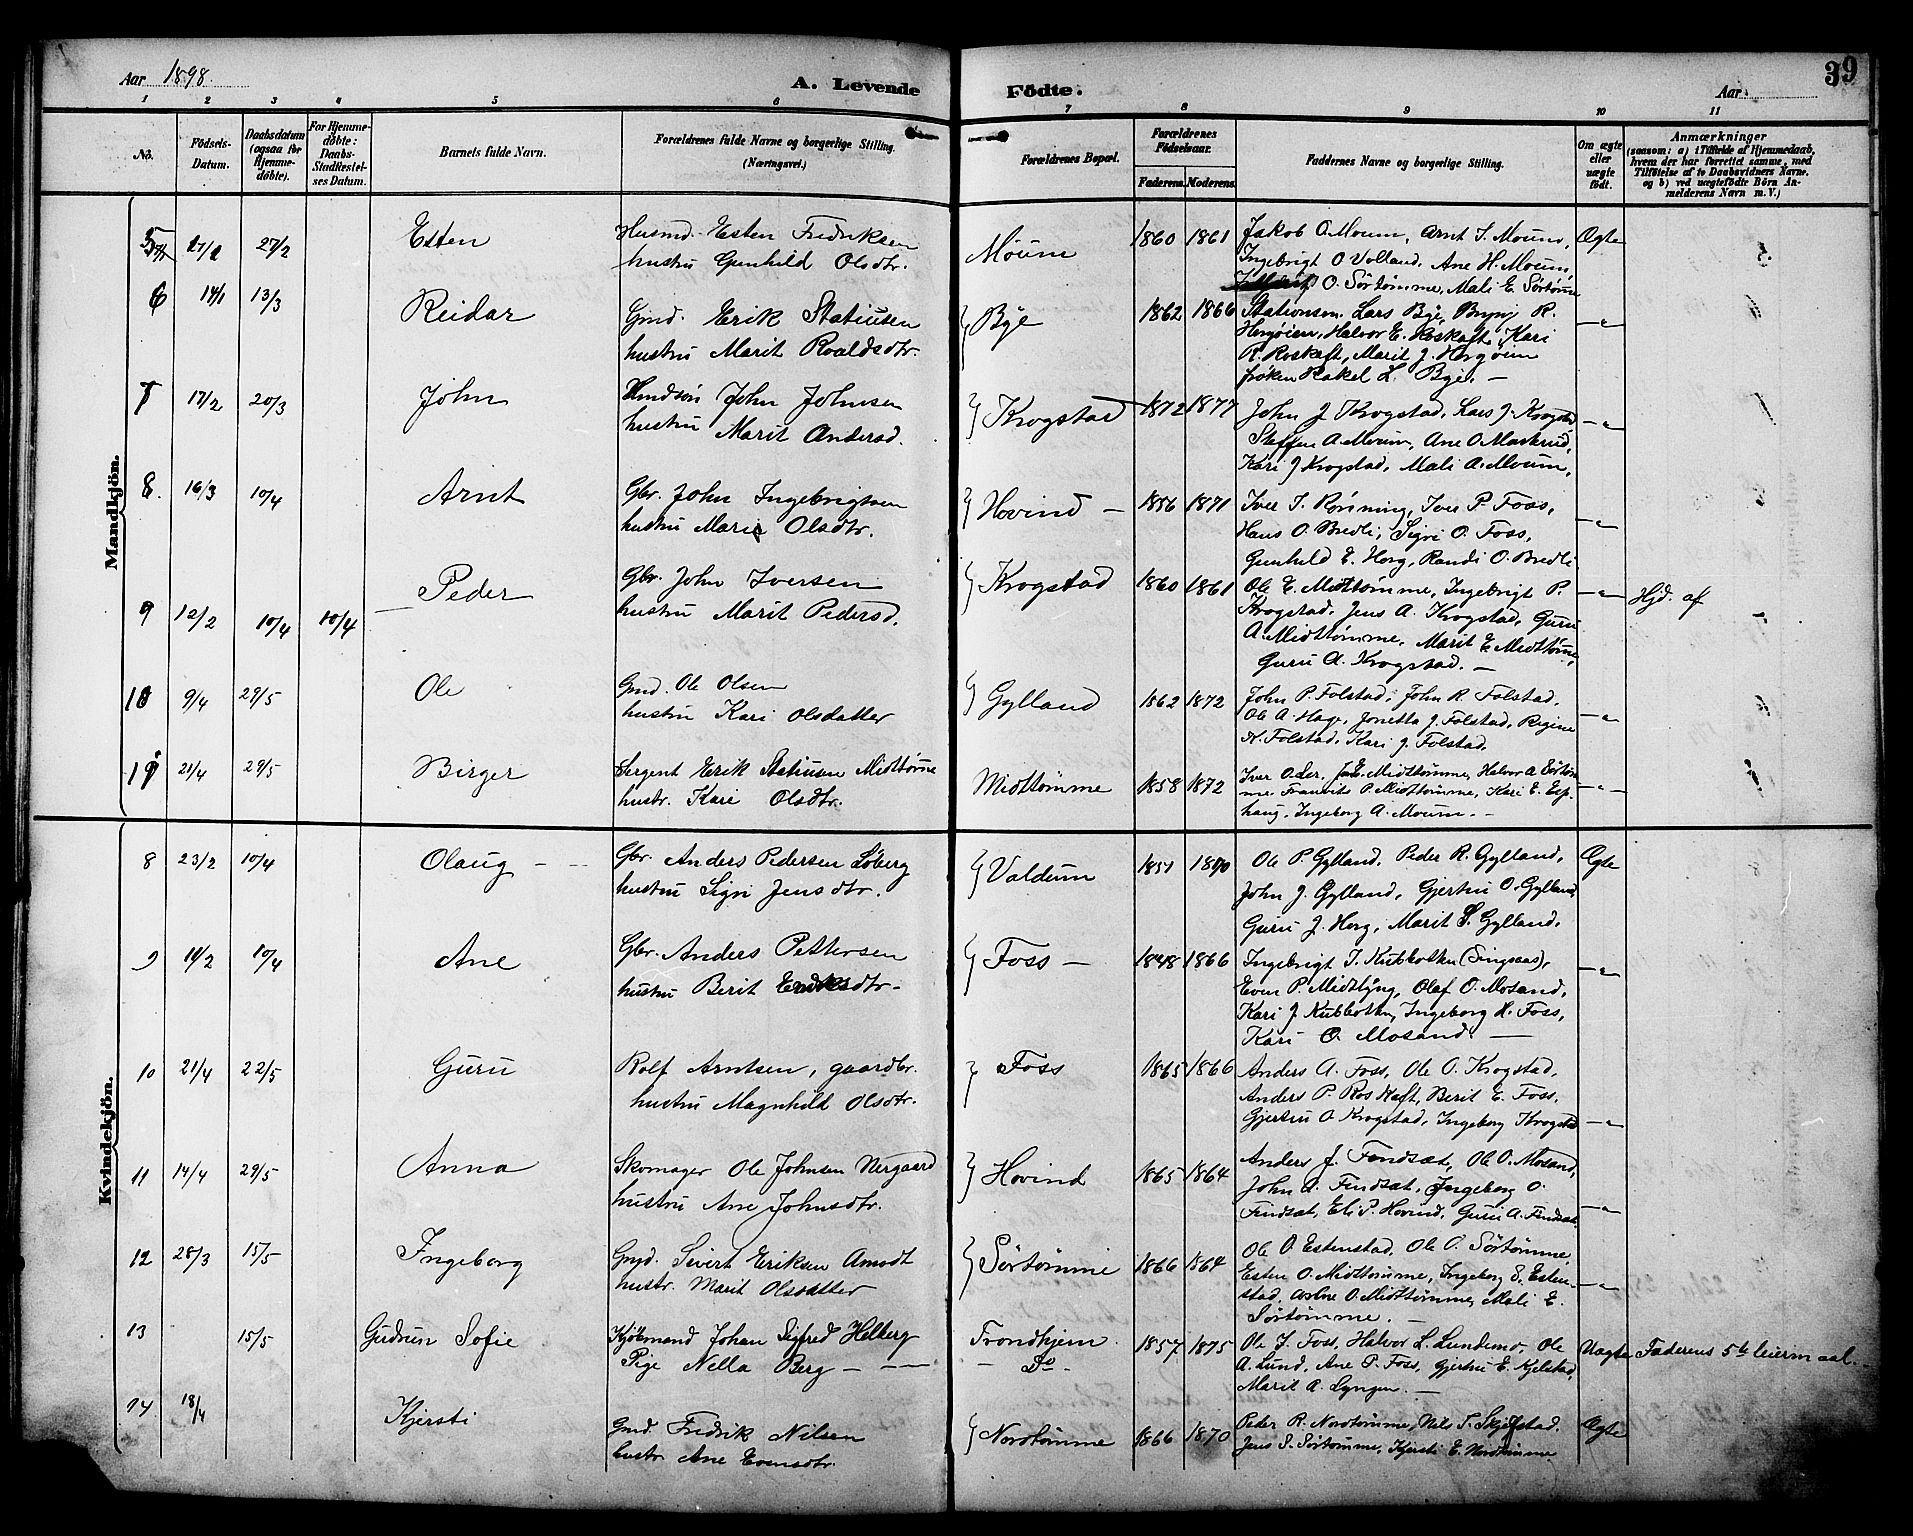 Aar 1898.
A. Levende Fødte.
Aar
39
1 2 3 4 5 6 7 8 9 10 11
No.
Födsels-Datum.
Daabsdatum (ogsaa for Hjemmedöbte).
For Hjemmedöbte: Daabs-Stadfestelses Datum.
Barnets fulde Navn.
Forældrenes fulde Navne og borgerlige Stilling. (Næringsvei.)
Forældrenes Bopæl.
Forældrenes Födselsaar.
Faderens. Moderens.
Faddernes Navne og borgerlige Stilling.
Om ægte eller uægte født.
Anmærkninger
(saasom: a) i Tilfælde af Hjemmedaab, hvem der har forrettet samme, med Tilföielse af to Daabsvidners Navne, og b) ved uægtefödte Börn Anmelderens Navn m. V.)
Mandkjön.
5 27/2 Esten
Husmd. Esten Fredriksen
hustru Gunhild Olsdtr.
Moum 1860 1861
Jakob O. Moum, Arnt I. Moum,
Ingebrigt O Volland, Ane H. Moum,
O. Sörtömme, Mali E. Sörtömme
Ægte
6 14/1 13/3 Reidar
Gmd. Erik Statiusen
hustru Marit Roaldsdtr.
Bye 1862 1866
Stationsm. Lars Bye, Brynj R.
Horgöien, Halvor E. Roskaft, Kari
R. Roskaft, Marit J. Horgöien
fröken Rakel L. Bye. —
7 17/2 20/3 John
John Johnsen
hustru Marit Andersd.
Krogstad 1872 1877
John J Krogstad, Lars J. Krogstad,
Steffen A. Moum, Ane O. Markrud,
Kari J Krogstad, Mali A. Moum,
8. 16/3 10/4 Arnt
Gbr. John Ingebrigtsen
hustru Marie Olsdtr.
Hovind — 1856 1871
Iver I. Rönning, Iver P. Foss,
Hans O. Bredli, Sigri O. Foss,
Gunhild E. Horg, Randi O. Bredli
9 12/2 10/4 10/4 Peder
Gbr. John Iversen
hustru Marit Pedersd.
Krogstad 1860 1861
Ole E. Midttömme, Ingebrigt P.
Krogstad, Jens A. Krogstad, Guru
A. Midttömme, Marit E. Midttömme,
Guru A. Krogstad. —
Hjd. af
10 9/4 29/5 Ole
Gmd. Ole Olsen
hustru Kari Olsdatter
Gylland 1862 1872
John P. Folstad, John R. Folstad,
Ole A. Hage, Jonetta J. Folstad, Regine
H. Folstad, Kari J. Folstad.
11 21/4 29/5 Birger
Sergent Erik Statiusen Midttömme
hustr. Kari Olsdtr.
Midttömme 1858 1872
Iver E. Midttömme, Halvor A. Sörtöm-
me P. Midttömme, Kari E. Esp-
haug, Ingeborg A. Moum. —
Kvindekjön.
8 23/2 10/4 Olaug
Gbr. Anders Pedersen Löberg
hustru Sigri Jensdtr.
Valdum 1851
Ole P. Gylland, Peder R. Gylland,
John J. Gylland, Gjertru O. Gylland,
Guru J. Horg, Marit S. Gylland.
Ægte
9 10/4 Ane
Gbr. Anders Pettersen
hustru Berit Eriksdtr.
Foss — 1848 1866
Ingebrigt I. Kubbotten (Singsaas),
Even P. Midtlyng, Olaf O. Mosand,
Kari J. Kubbotten, Ingeborg H. Foss,
Kari O Mosand. —
10 21/4 22/5 Guru
Rolf Arntsen, gaardbr.
hustru Magnhild Olsdtr.
Foss 1865 1866
Anders A. Foss, Ole O. Krogstad,
Anders P. Roskaft, Berit E. Foss,
Gjertru O Krogstad, Ingeborg Krogstad
11 14/4 29/5 Anna
Skomager Ole Johnsen Nergaard
hustru Ane Johnsdtr.
Hovind 1865 1864
Anders J. Fendsæt, Ole O. Mosand,
John A. Fendsæt, Ingeborg O.
Fendsæt, Eli P. Hovind, Guru A. Fendsæt
12 28/3 15/5 Ingeborg
Gmd. Sivert Eriksen Amodt
hustr. Marit Olsdatter
Sörtömme 1866 1864
Ole O. Estenstad, Ole O. Sörtömme,
Esten O. Midttömme, Ingeborg E. Esten-
stad, O. Midttömme, Mali E.
Sörtömme. —
13 15/5 Gudrun Sofie
Kjöbmand Johan Sigfred Helberg
Pige Nella Berg —
Trondhjem.
— Do —
1857 1875
Ole J. Foss, Halvor L. Lundemo, Ole
A. Lund, Ane P. Foss, Gjertru E. Kjelstad,
Marit A. Lyngen. —
Uægte Faderens 5te leiermaal.
14 18/4 Kjersti
Gmd. Fredrik Nilsen
hustr Ane Evensdtr.
Nordtömme 1866 1870
Peder R. Nordtömme, Nils S. Skjefstad,
Jens S. Sörtömme, Kjersti E. Nordtömme
Ægte